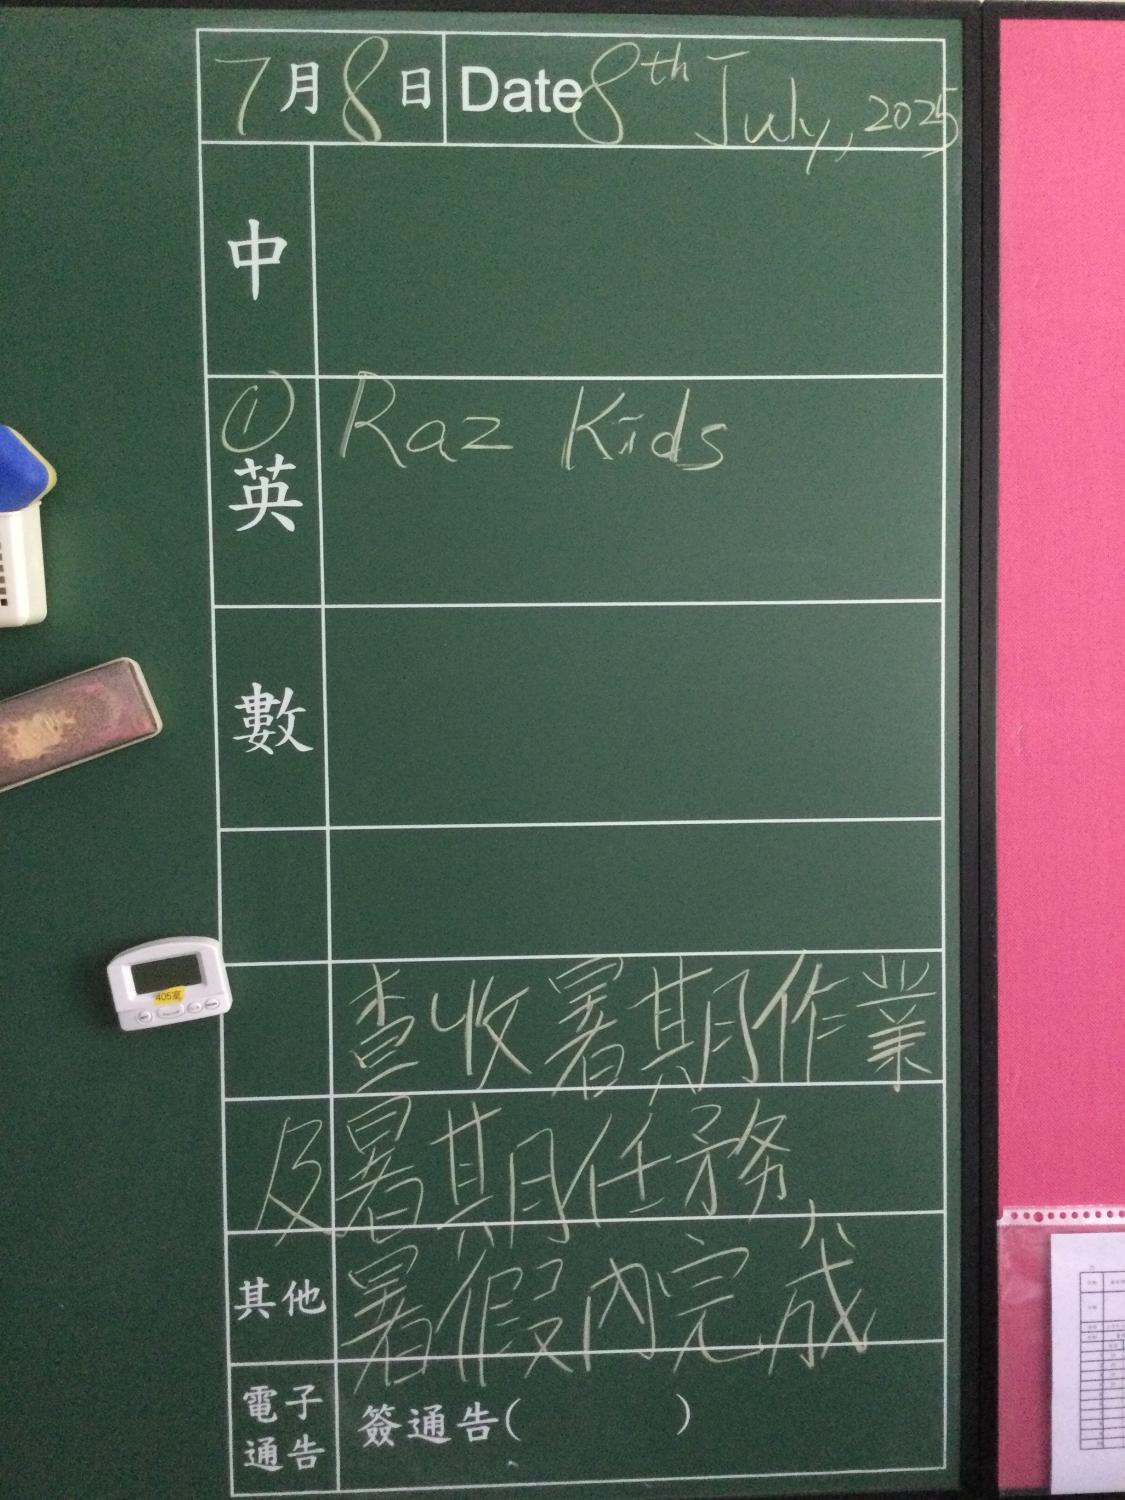 7月8日 Date 8th July, 2025
中
① Raz Kids
英
數
查收暑期作業
及暑期任務,
其他 暑假內完成
電子
通告 簽通告( )
405室